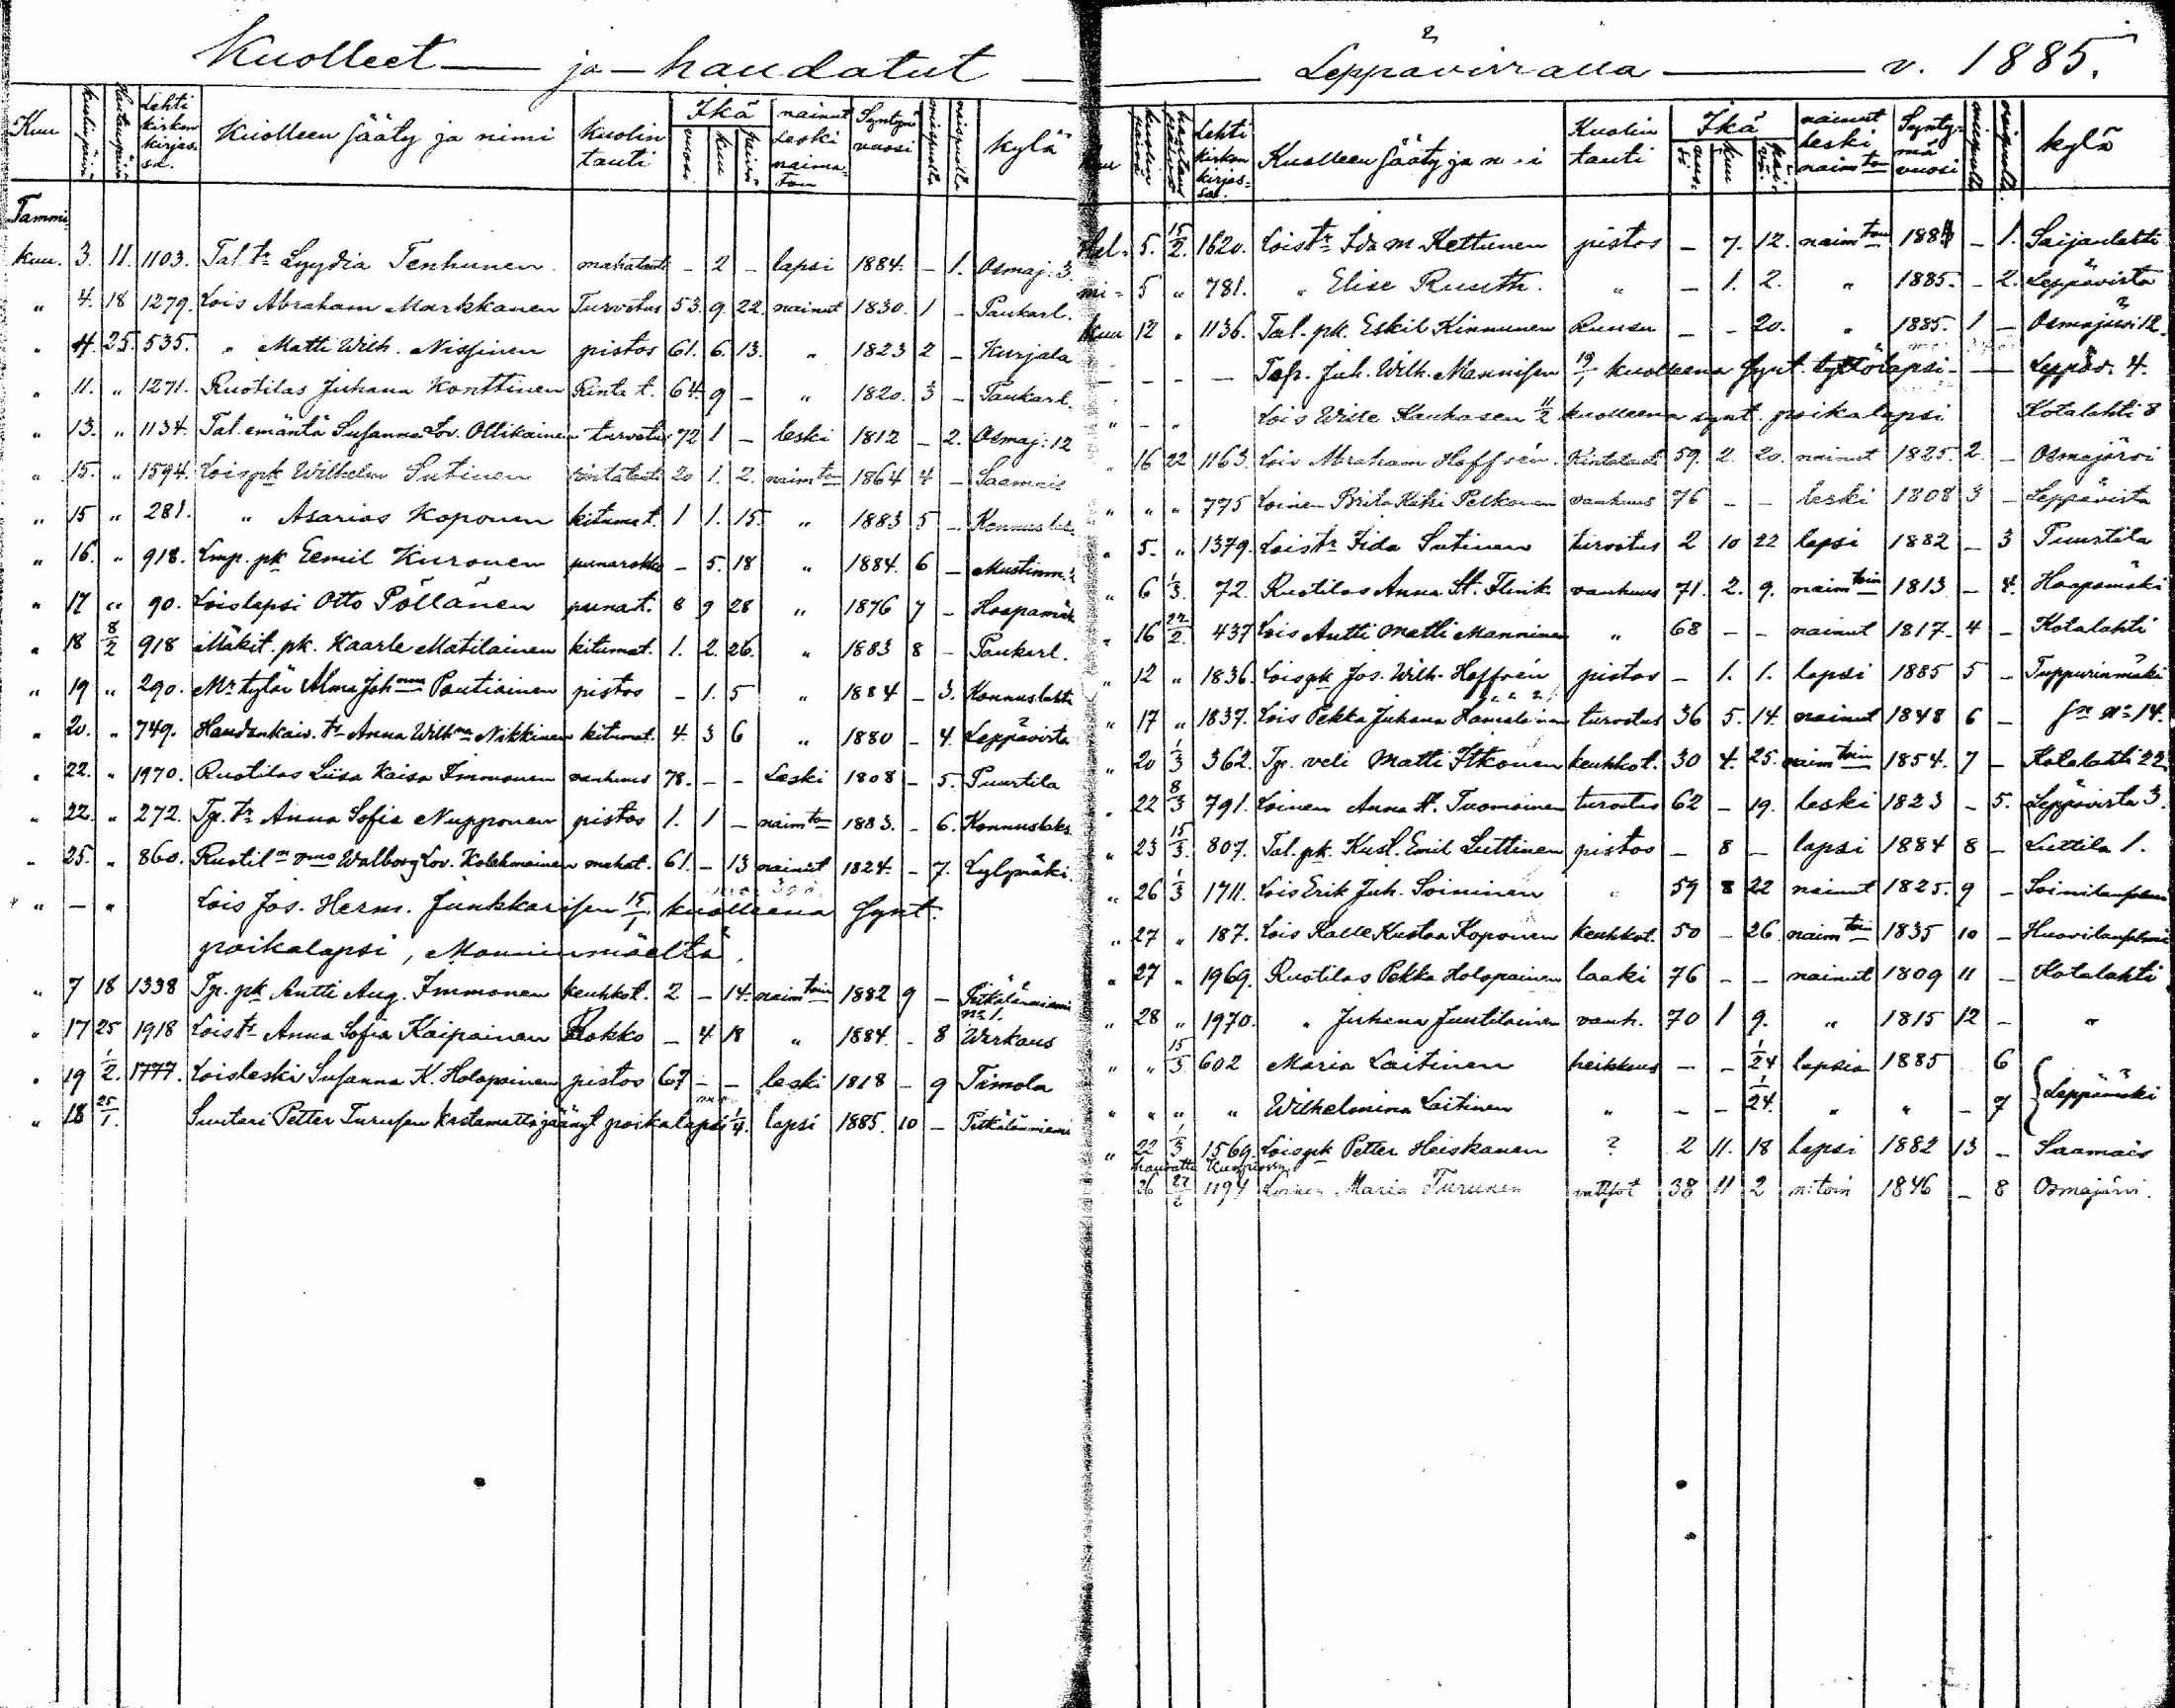 Kuolleet — ja — haudatut —
Kuu kuolinpäivä hautauspäivä Lehti kirkon kirjassa. Kuolleen sääty ja nimi Kuolin tauti Ikä vuosi kuu päivä nainut Leski naima-ton Syntymä vuosi miespuolta naispuolta kylä
Tammi
kuu. 3. 11. 1103. Tal. tr Lyydia Tenhunen. mahatauti – 2 – lapsi 1884. – 1. Osmaj. 3.
" 4. 18 1279. Lois Abraham Markkanen Turvotus 53. 9. 22. nainut 1830. 1 – Paukarl.
" 4. 25. 535. " Matti Wilh. Nissinen pistos 61. 6. 13. " 1823 2 – Kurjala
" 11. " 1271. Ruotilas Juhana Konttinen Rinta t. 64. 9 – " 1820. 3 – Paukarl.
" 13. " 1134. Tal. emäntä Susanna Lov. Ollikainen turvotus 72 1 – leski 1812 – 2. Osmaj: 12
" 15. " 1594. Lois pk Wilhelm Sutinen rintatauti 20 1. 2. naimton 1864 4 – Saamais
" 15 " 281. " Asarias Koponen kitumat. 1 1. 15. " 1883 5 – Konnuslak.
" 16. " 918. Lmp. pk Eemil Kuronen punarokko – 5. 18 " 1884. 6 – Mustinm.
" 17 " 90. Loislapsi Otto Pöllänen punat. 8 9 28 " 1876 7 – Haapamäk
" 18 8/2 918 Mäkit. pk. Kaarle Matilainen kitumat. 1. 2. 26. " 1883 8 – Paukarl.
" 19 " 290. Mr tytär Alma Johnna Pautiainen pistos – 1. 5 " 1884 – 3. Konnuslahti
" 20. " 749. Haudankaiv. tr Anna Wilhna Nikkinen kitumat. 4. 3 6 " 1880 – 4. Leppävirta
" 22. " 1970. Ruotilas Liisa Kaisa Immonen vanhuus 78. – – Leski 1808 – 5. Puurtila
" 22. " 272. Tp. tr Anna Sofia Nupponen pistos 1. 1 – naimton 1883. – 6. Konnuslaks
" 25. " 860. Ruotiln vmo Walborg Lov. Kolehmainen mahat. 61. – 13 nainut 1824. – 7. Lylymäki.
" – " Lois Jos. Herm. Junkkarisen 15/1 kuolleena synt.
poikalapsi, Manninmäeltä.
" 7 18 1338 Tp. pk Antti Aug. Immonen keuhkot. 2 – 14. naimtoin 1882 9 – Pitkälänniemi no 1.
" 17 25 1918 Lois tr Anna Sofia Kaipainen Rokko – 4 18 " 1884. – 8 Warkaus
" 19 1/2. 1777. Loisleski Susanna K. Holopainen pistos 67 – – leski 1818 – 9 Timola
" 18 25/1. Suutari Petter Turusen kastamatta jäänyt poikalapsi 1/4. lapsi 1885. 10 – Pitkälänniemi
Leppävirralla — v. 1885.
Kuu kuolin päivä hautaus päivä Lehti kirkon kirjas-sa. Kuolleen sääty ja nimi Kuolin tauti Ikä vuo-si kuu päi-vä nainut leski naimton Synty-mä vuosi miespuolta naispuolta kylä
Hel- 5. 15/2. 1620. Lois tr Ida M. Kettunen pistos – 7. 12. naimton 1884 – 1. Saijanlahti
mi- 5 " 781. " Elise Ruuth. " – 1. 2. " 1885. – 2. Leppävirta
kuu 12 " 1136. Tal. pk. Eskil Kinnunen Ruusu – – 20. " 1885. 1 – Osmajärvi 12.
– – – – Talp. Juh. Wilh. Mannisen 19/1 kuolleena synt. tyttölapsi – — Leppäv. 4.
" – " Lois Wille Kauhasen 11/2 kuolleena synt. poikalapsi Kotalahti 8
" 16 22 1163. Lois Abraham Hoffrén. Rintatauti 59. 2. 20. nainut 1825. 2. – Osmajärvi
" " " 775 Loinen Brita Kaki Pelkonen vanhuus 76 – – leski 1808 3 – Leppävirta
" 5. " 1379. Lois tr Fida Sutinen turvotus 2 10 22 lapsi 1882 – 3 Puurtila
" 6 1/3. 72. Ruotilas Anna St. Flink. vanhuus 71. 2. 9. naimtoin 1813 – 4. Haapamäki
" 16 22/2. 437 Lois Antti Matti Manninen " 68 – – nainut 1817. 4 – Kotalahti
" 12 " 1836. Lois pk Jos. Wilh. Hoffrén pistos – 1. 1. lapsi 1885 5 – Tuppurinmäki
" 17 " 1837. Lois Pekka Juhana Hämäläinen turvotus 36 5. 14. nainut 1848 6 – sn no 14.
" 20 1/3 362. Tp. veli Matti Itkonen keuhkot. 30 4. 25. naimtoin 1854. 7 – Kotalahti 22.
" 22 8/3 791. Loinen Anna St. Tuomainen turvotus 62 – 19. leski 1823 – 5. Leppävirta 3.
" 23 15/3. 807. Tal. pk. Kust. Emil Luttinen pistos – 8 – lapsi 1884 8 – Luttila 1.
" 26 1/3 1711. Lois Erik Juh. Soininen " 59 8 22 nainut 1825. 9 – Soinilansalmi
" 27 " 187. Lois Kalle Kustaa Koponen keuhkot. 50 – 26 naimtoin 1835 10 – Huovilansalmi
" 27 " 1969. Ruotilas Pekka Holopainen laaki 76 – – nainut 1809 11 – Kotalahti
" 28 " 1970. " Juhana Juntilainen vanh. 70 1 9. " 1815 12 – "
" " 15/3 602 Maria Laitinen heikkous – – 1/24 lapsia 1885 6
" " " " Wilhelmina Laitinen " – – 1/24. " " – 7 Leppämäki
" 22 1/3 1569. Lois pk Petter Heiskanen ? 2 11. 18 lapsi 1882 13 – Saamais
haudattu Kuopioon
26 27/2 1194 Loinen Maria Turunen 38 11 2 n:toin 1846 – 8 Osmajärvi.